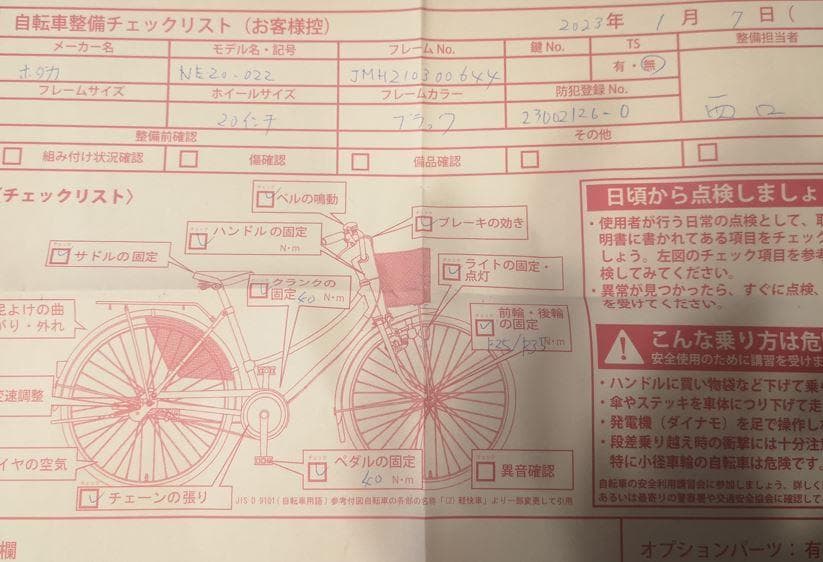 自転車整備チェックリスト（お客様控） 2023年 1月 7日（
メーカー名 モデル名・記号 フレームNo. 鍵No. TS 整備担当者
ホダカ NE20-022 JMH210300644 有・無
フレームサイズ ホイールサイズ フレームカラー 防犯登録No. 西口
20インチ ブラック 23002126-0
整備前確認 その他
組み付け状況確認 傷確認 備品確認
チェックリスト〉
ベルの鳴動
ハンドルの固定
N・m
ブレーキの効き
サドルの固定
クランクの
固定 40 N・m
ライトの固定・
点灯
前輪・後輪
の固定
F25/R35N・m
泥よけの曲
がり・外れ
変速調整
イヤの空気
チェーンの張り
ペダルの固定
40 N・m
異音確認
JIS D 9101(自転車用語)参考付図自転車の各部の名称「(2)軽快車」より一部変更して引用
日頃から点検しましょ
・使用者が行う日常の点検として、取
明書に書かれてある項目をチェック
しょう。左図のチェック項目を参考
検してみてください。
・異常が見つかったら、すぐに点検、
を受けてください。
こんな乗り方は危
安全使用のために講習を受けま
・ハンドルに買い物袋など下げて乗
・傘やステッキを車体につり下げて走
・発電機（ダイナモ）を足で操作し
・段差乗り越え時の衝撃には十分注
特に小径車輪の自転車は危険です。
自転車の安全利用講習会に参加しましょう。詳しく
あるいは最寄りの警察署や交通安全協会に確認して
欄 オプションパーツ：有